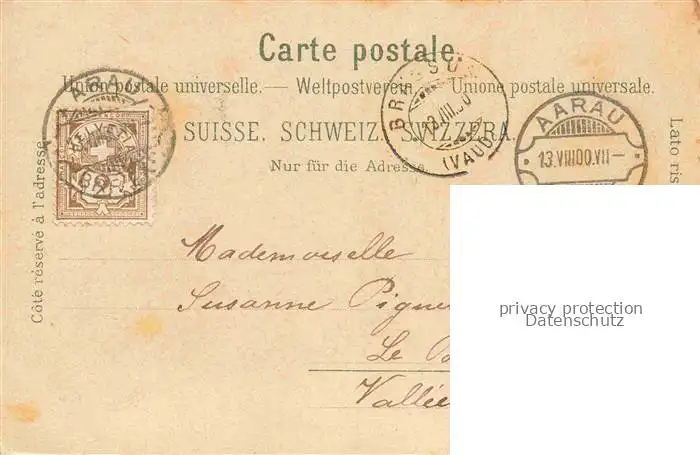 Carte postale.
Union postale universelle. — Weltpostverein. — Unione postale universale.
SUISSE. SCHWEIZ. SVIZZERA.
Nur für die Adresse.
Côté réservé à l'adresse.
Lato ris
AARAU
HELVETIA
BRASSUS
13.VIII.00
(VAUD)
AARAU
13.VIII00.VII—
Mademoiselle
Susanne Pigue
Le
Vallée
privacy protection
Datenschutz